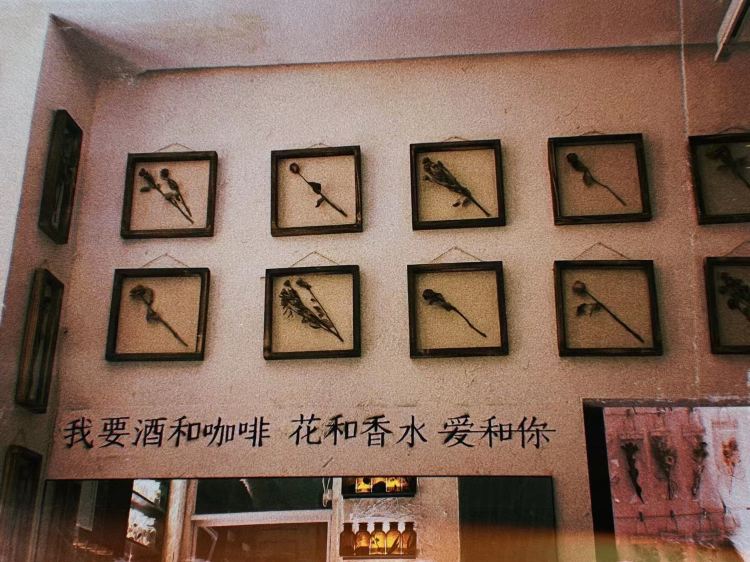 我要酒和咖啡 花和香水 爱和你